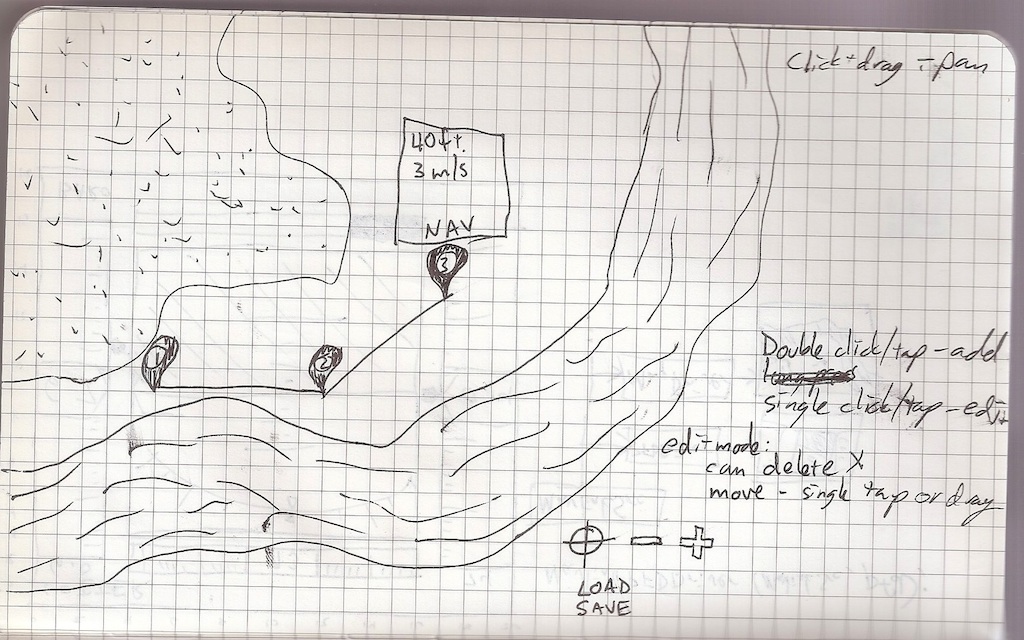 Click+drag = pan
40ft.
3 m/s
NAV
3
1
2
Double click/tap - add
long press
single click/tap - edit
edit mode:
can delete X
move - single tap or drag
LOAD
SAVE